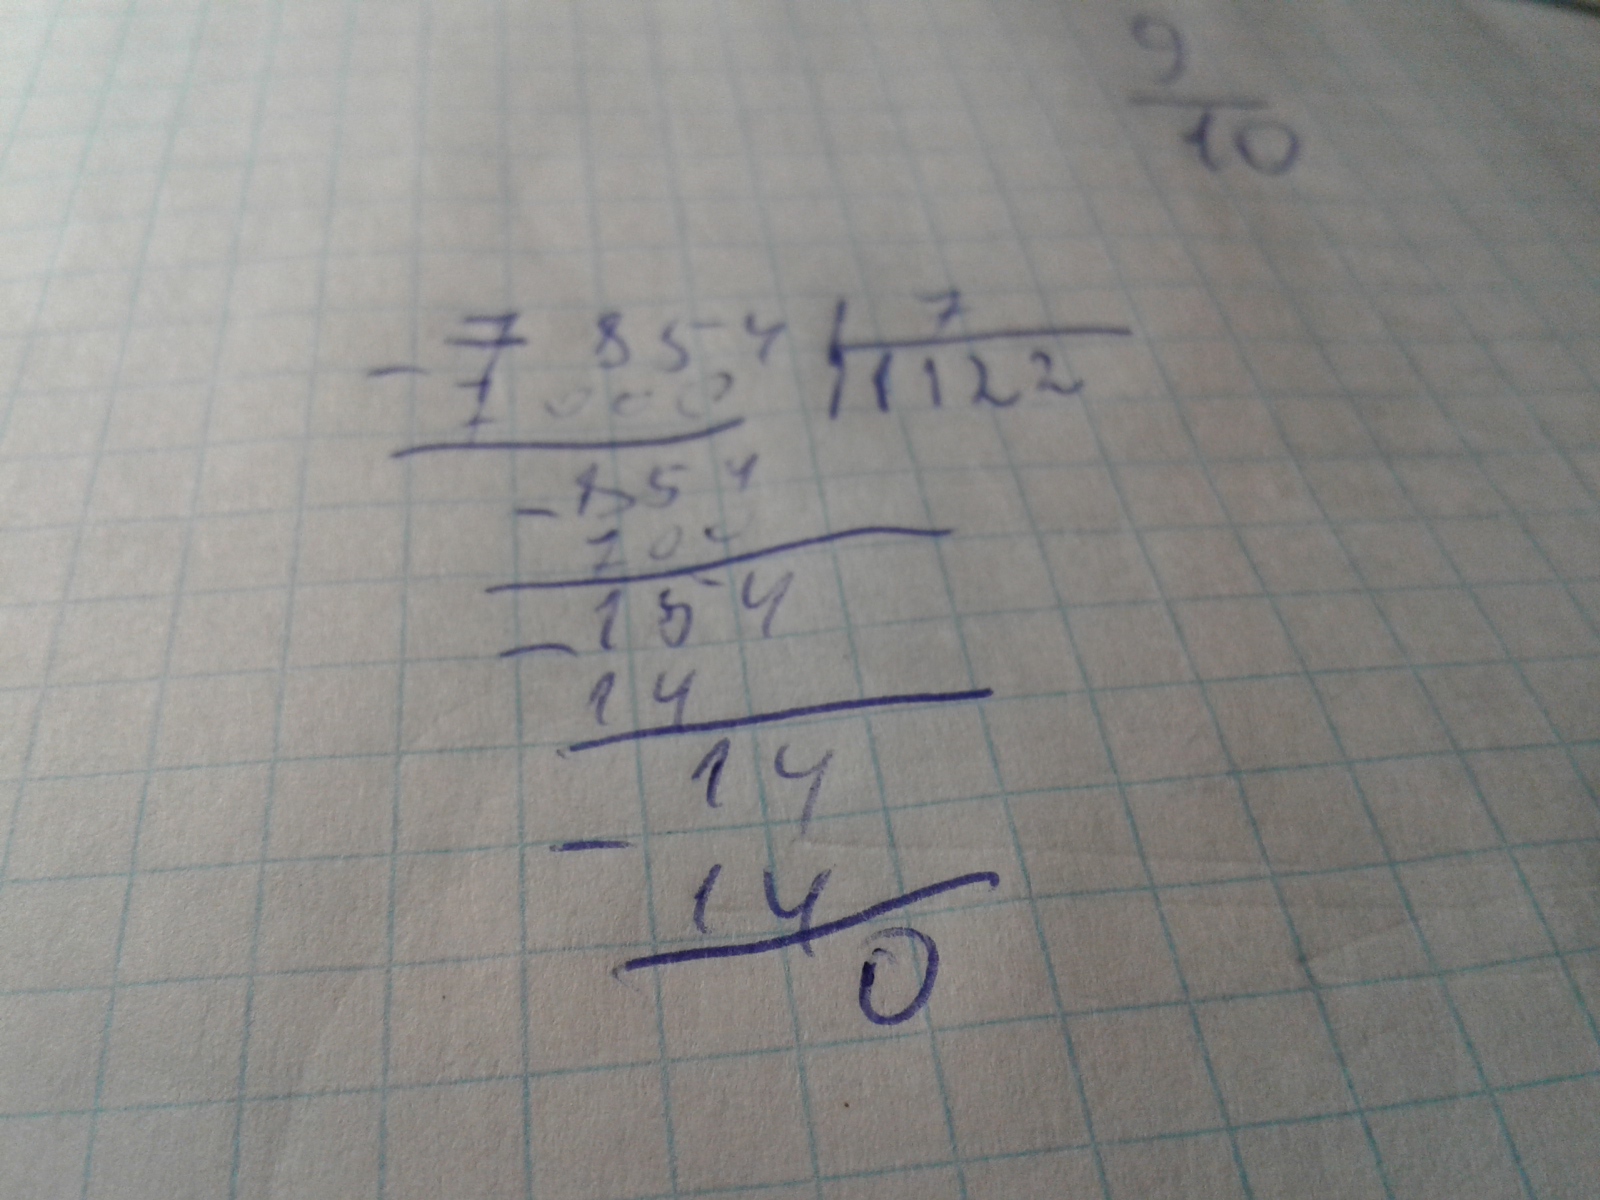 9
10
- 7 854 | 7
7 000 | 1122
- 854
700
- 154
14
14
- 14
0